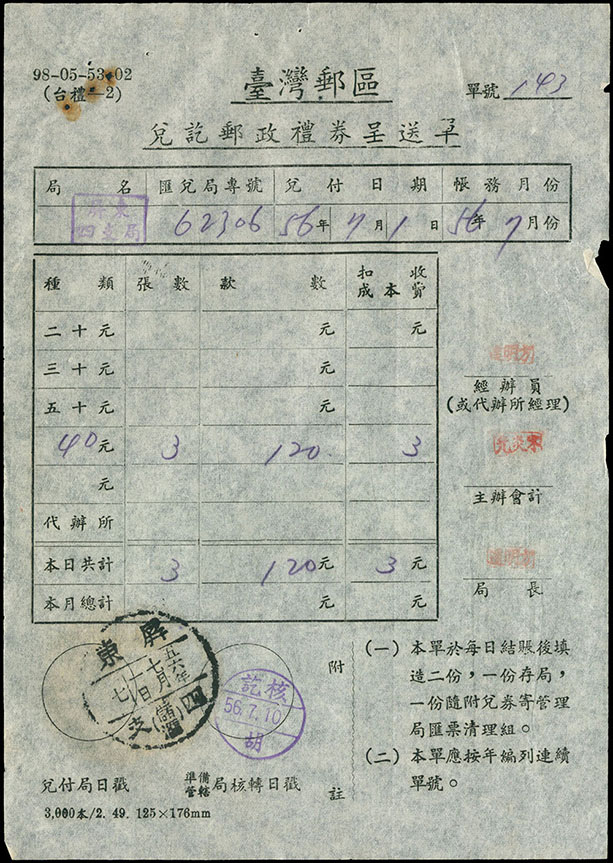 98-05-53-02
(台禮—2)
臺灣郵區
單號 143
兌訖郵政禮券呈送單
局名 匯兌局專號 兌付日期 帳務月份
屏東 62306 56年7月1日 56年7月份
四支局
種類 張數 款數 扣收成本費
二十元 元 元
三十元 元
五十元 元
40元 3 120 3
元
代辦所
本日共計 3 120元 3元
本月總計 元 元
經辦員
(或代辦所經理)
主辦會計
局長
屏東
五六年
七月
一日
四支
核訖
56.7.10
胡
附註
(一) 本單於每日結賬後填
造二份，一份存局，
一份隨附兌券寄管理
局匯票清理組。
(二) 本單應按年編列連續
單號。
兌付局日戳
準備
管轄 局核轉日戳
3,000本/2. 49. 125×176mm